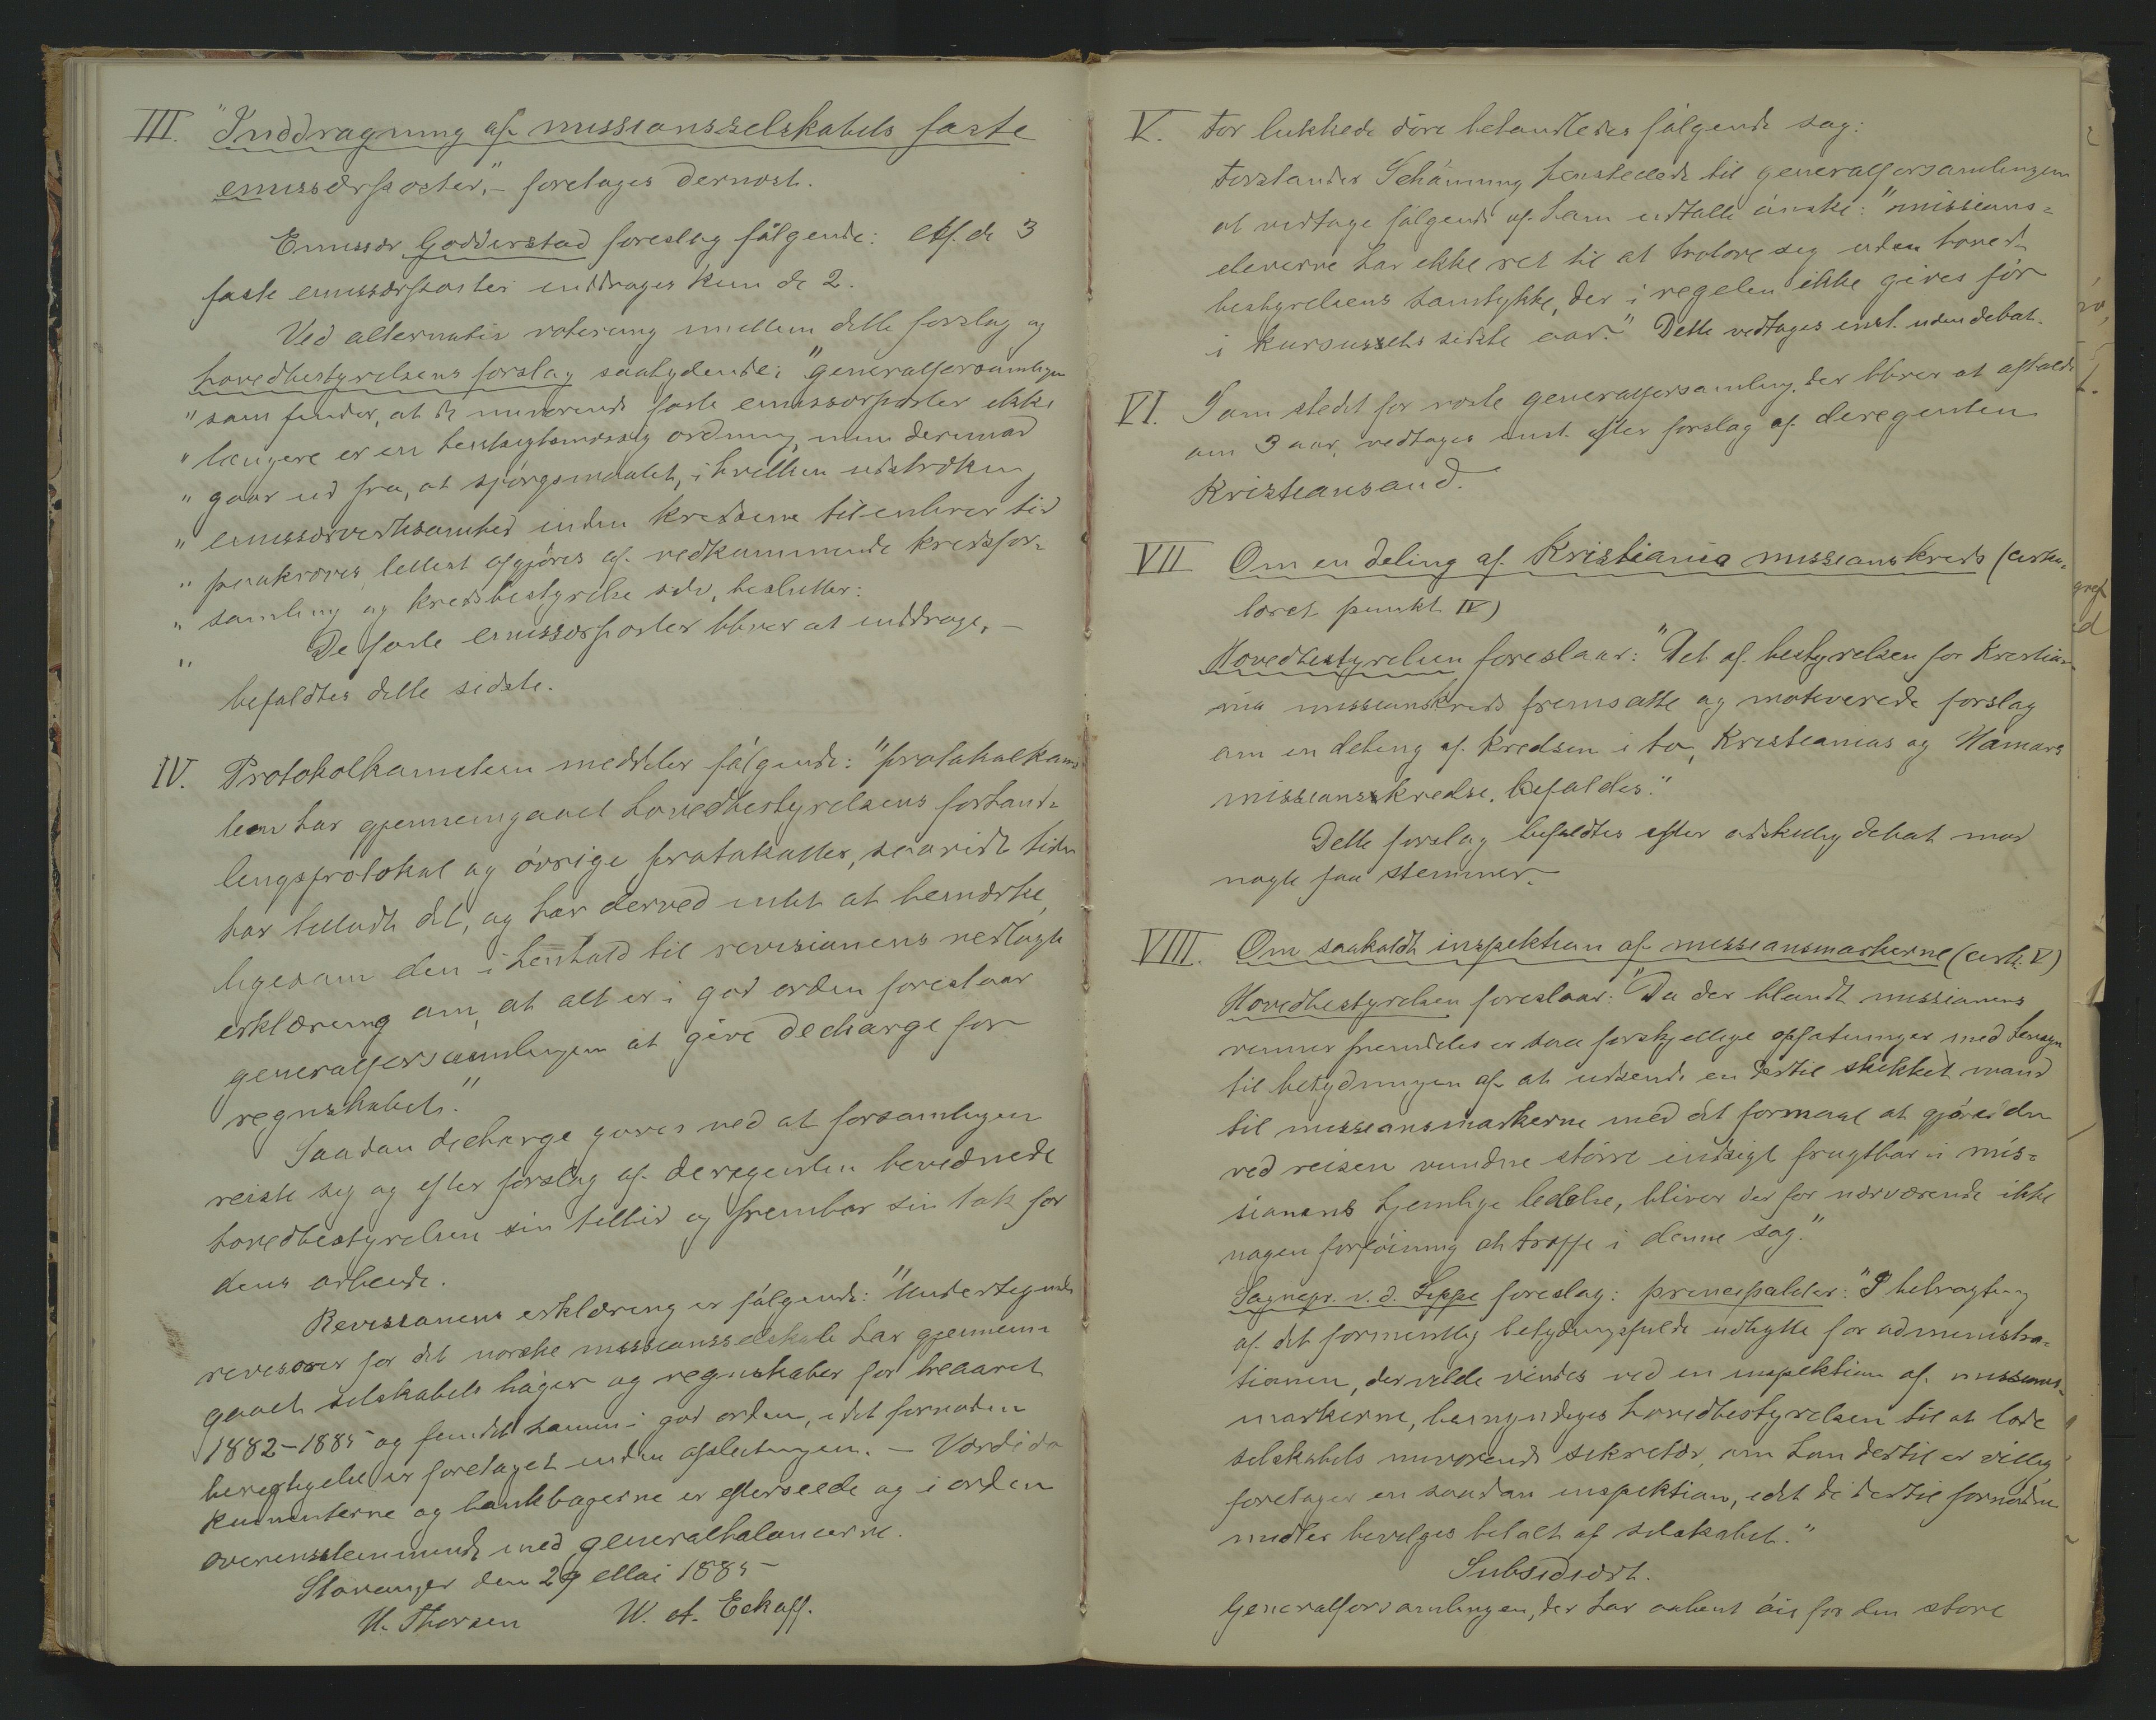 III. "Inddragning af missionsselskabets faste
emissærposter", – foretages dernæst.
Emissær Godderstad foreslog følgende: Af de 3
faste emissærposter inddrages kun de 2.
Ved alternativ votering mellem dette forslag og
hovedbestyrelsens forslag saalydende: "generalforsamlingen
" som finder, at de nuværende faste emissærposter ikke
" længere er en hensigtsmæssig ordning, men derimod
" gaar ud fra, at spørgsmaalet, i hvilken udstrækning
" emissærvirksomhed inden kredsene til enhver tid
" paakræves, lettest afgjøres af vedkommende kredsfor-
" samling og kredsbestyrelse selv, beslutter:
" De faste emissærposter bliver at inddrage, –
befaldtes dette sidste.
IV. Protokolkomiteen meddeler følgende: "protokolkomi
teen har gjennemgaaet hovedbestyrelsens forhand-
lingsprotokol og øvrige protokoller, saavidt tiden
har tilladt det, og har derved intet at bemærke,
ligesom den i henhold til revisionens vedlagte
erklæring om, at alt er i god orden foreslaar
generalforsamlingen at give decharge for
regnskabet."
Saadan decharge gaves ved at forsamlingen
reiste seg og efter forslag af deregenten bevidnede
hovedbestyrelsen sin tillid og frembar sin tak for
dens arbeide.
Revisionens erklæring er følgende: "Undertegnede
revisorer for det norske missionsselskab har gjennem-
gaaet selskabets bøger og regnskaber for treaaret
1882–1885 og fundet samme i god orden, idet fornøden
berigtigelse er foretaget under afslutningen. – Værdido
kumenterne og bankbøgerne er efterseede og i orden
overensstemmende med generalbalancerne.
Stavanger den 29 Mai 1885
H. Thorsen W. A. Eckhoff.
V. For lukkede døre behandledes følgende sag:
Forstander Schänning henstillede til generalforsamlingen
at vedtage følgende af ham udtalte ønske: "missions-
eleverne har ikke ret til at trolove seg uden hoved-
bestyrelsens samtykke, der i regelen ikke gives før
i kursussets sidste aar." Dette vedtages enst. uden debat.
VI. Som stedet for næste generalforsamling, der bliver at afholde
om 3 aar, vedtages enst. efter forslag af deregenten
Kristiansand.
VII Om en deling af Kristiania missionskreds (cirku-
læret punkt IV)
Hovedbestyrelsen foreslaar: "Det af bestyrelsen for Kristia-
nia missionskreds fremsatte og motiverede forslag
om en deling af kredsen i to, Kristianias og Hamars
missionskredse, befaldes."
Dette forslag befaldtes efter adskillig debat mod
nogle faa stemmer.
VIII. Om saakaldt inspektion af missionsmarkerne (cirk. V)
Hovedbestyrelsen foreslaar: "Da der blandt missionens
venner fremdeles er saa forskjellige opfatninger med hensyn
til betydningen af at udsende en dertil skikket mand
til missionsmarkerne med det formaal at gjøre den
ved reisen vundne større indsigt frugtbar i mis-
sionens hjemlige ledelse, bliver der for nærværende ikke
nogen forføining at træffe i denne sag."
Sognepr. v. d. Lippe foreslog: principaliter: "I betragtning
af det formentlig betydningsfulde udbytte for administra-
tionen, der vilde vindes ved en inspektion af missions-
markerne, bemyndiges hovedbestyrelsen til at lade
selskabets nuværende sekretær, om han dertil er villig
foretager en saadan inspektion, idet de dertil fornødne
midler bevilges betalt af selskabet."
Subsidiært.
Generalforsamlingen, der har aabent øie for den store